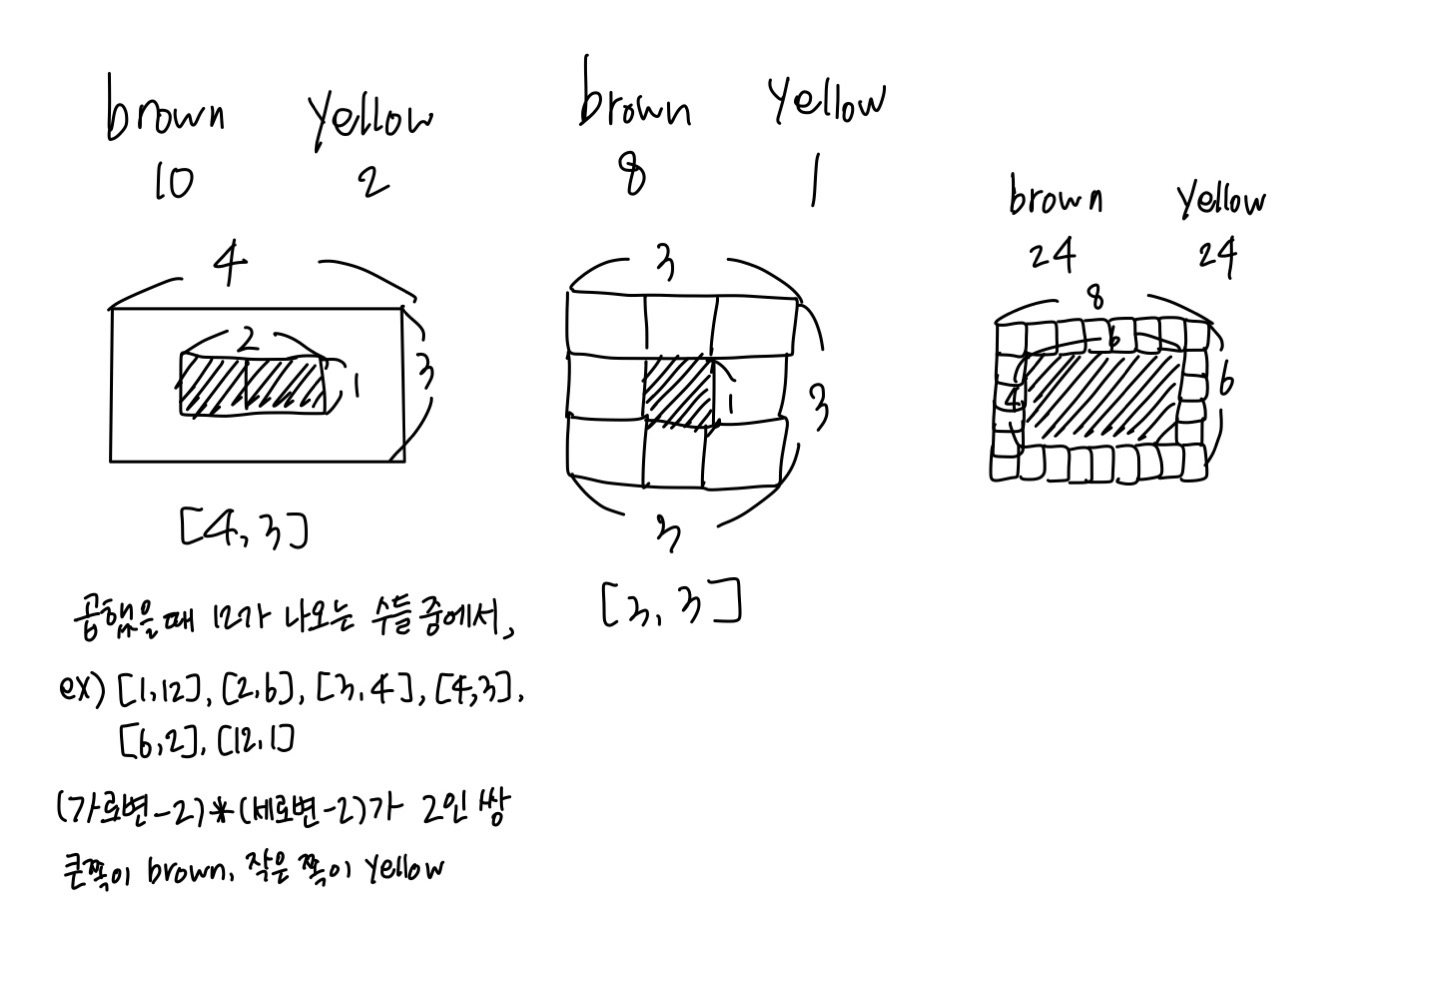 brown yellow
10 2
4
2
1
3
[4,3]
곱했을때 12가 나오는 수들 중에서,
ex) [1,12], [2,6], [3,4], [4,3],
[6,2], [12,1]
(가로변-2)*(세로변-2)가 2인 쌍
큰쪽이 brown, 작은 쪽이 yellow
brown yellow
8 1
3
1
3
3
[3,3]
brown yellow
24 24
8
6
4
6